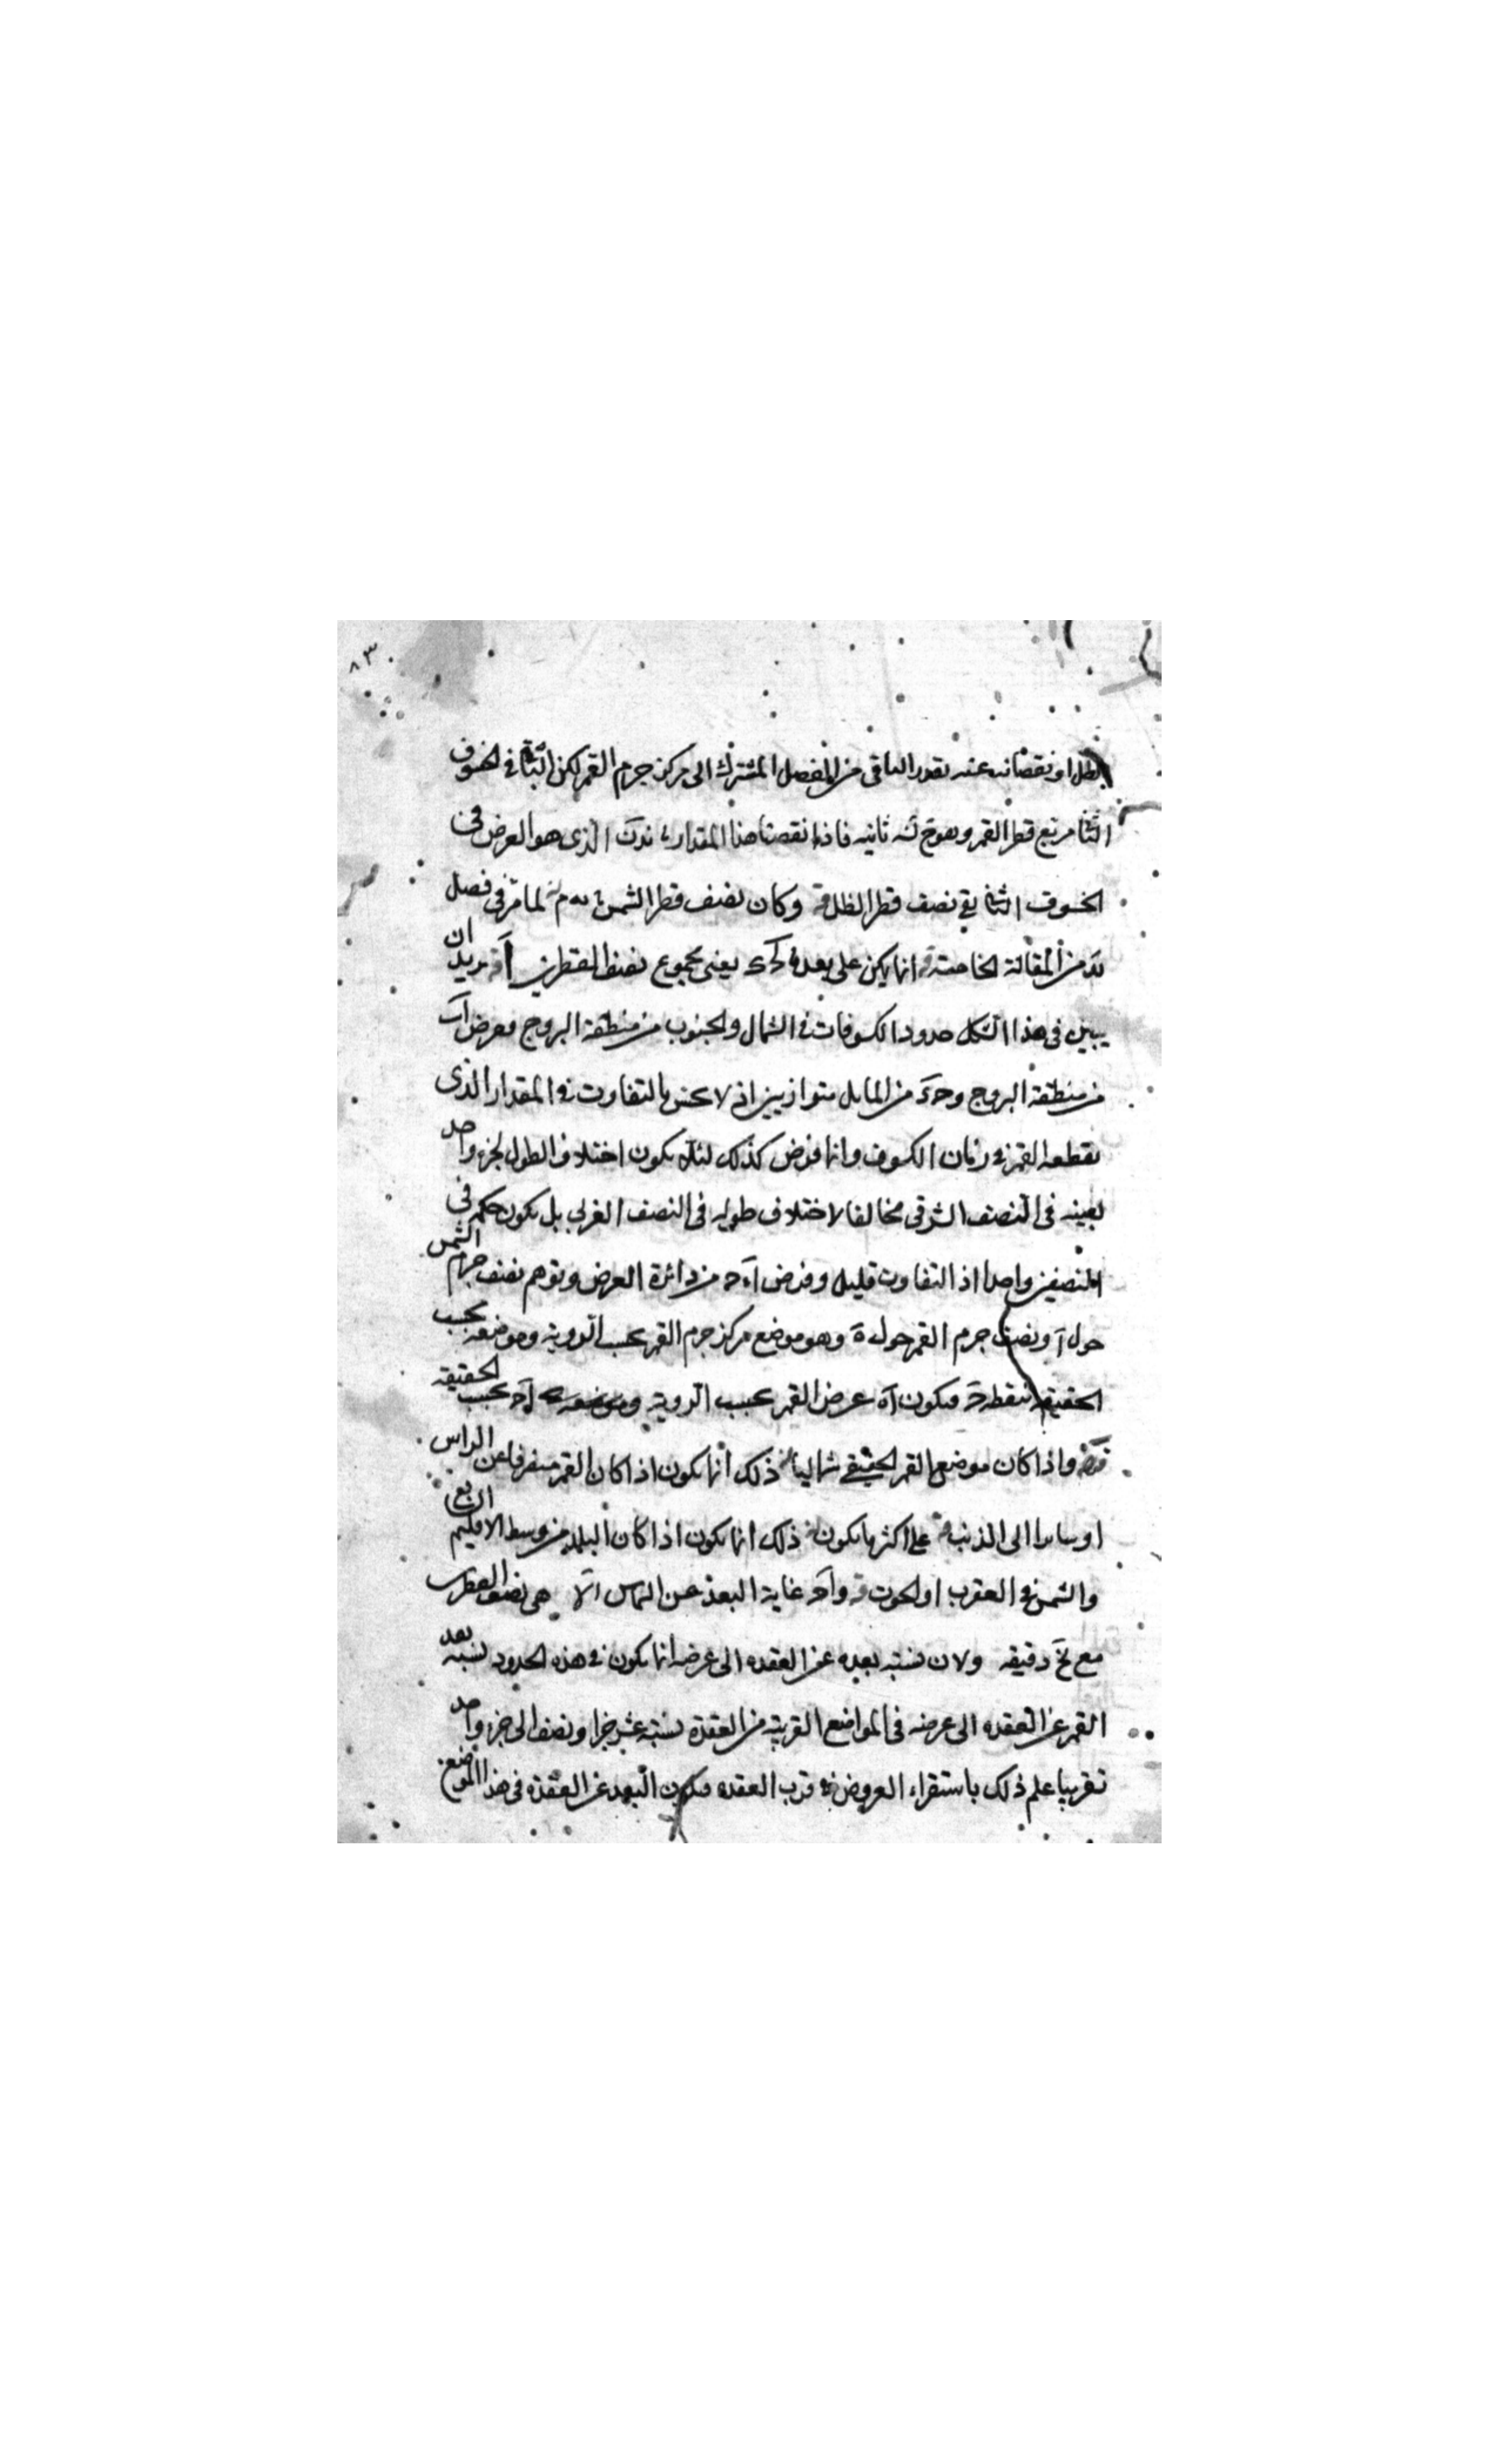 ٨٣
الظل او نقصانه عنه بقدر الباقى من الفصل المشترك الى مركز جرم القمر لكن الباقى فى الخسوف
الثانى ربع قطر القمر وهو ثانيه فاذا نقصنا هذا المقدار الذى هو العرض فى
الخسوف الثانى بقى نصف قطر الظل وكان نصف قطر الشمس لما مر فى فصل
من المقالة الخامسة انما يكن على بعد يعنى مجموع نصفى القطرين يريد ان
يبين فى هذا الشكل حدود الكسوفات فى الشمال والجنوب من منطقة البروج وفرض اب
من منطقة البروج وحد من المايل متوازيين اذ لا يحس بالتفاوت فى المقدار الذى
يقطعه القمر فى زمان الكسوف وانما فرض كذلك لئلا يكون اختلاف الطول لجزء واحد
بعينه فى النصف الشرقى مخالفا لاختلاف طوله فى النصف الغربى بل يكون حكمه فى
النصفين واحدا اذ التفاوت قليل وفرض اه‍ح من دائرة العرض وتوهم نصف جرم الشمس
حول ا ونصف جرم القمر حول ه‍ وهو موضع مركز جرم القمر بحسب الروية وموضعه بحسب
الحقيقة نقطة ح فيكون اه‍ عرض القمر بحسب الروية اح بحسب الحقيقه
واذا كان موضع القمر الحقيقى شماليا ذلك انما يكون اذا كان القمر منصرفا عن الراس
او سايرا الى الذنب على اكثر ما يكون ذلك انما يكون اذا كان البلد من وسط الاقليم الرابع
والشمس فى العقرب او الحوت واح غاية البعد عن التماس هى نصف القطرين
مع دقيقه ولان نسبة بعده عن العقده الى عرضه انما يكون فى هذه الحدود نسبة بعد
القمر عن العقده الى عرضه فى المواضع القريبة من العقدة نسبة عشر جزا ونصف الى جزء واحد
تقريبا علم ذلك باستقراء العروض فى قرب العقده فيكون البعد عن العقدة فى هذا الموضع